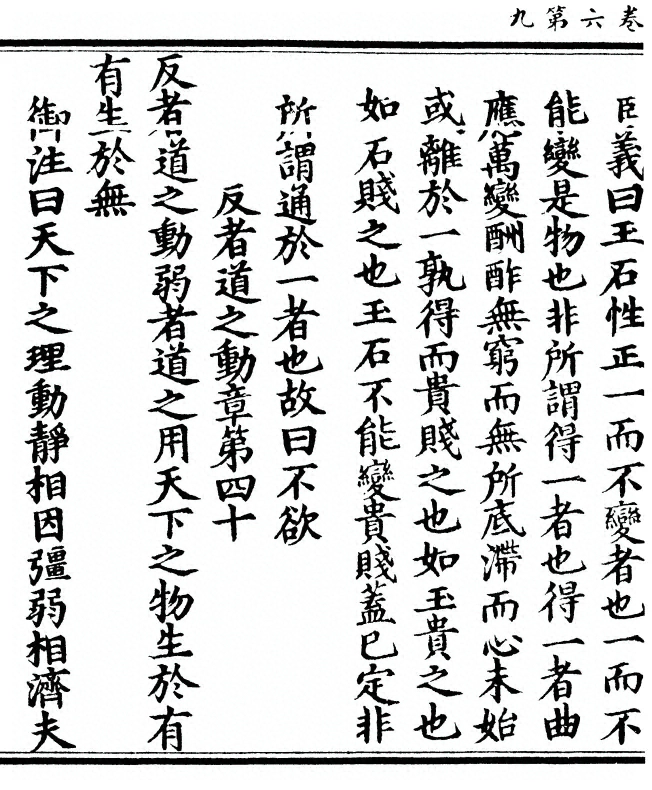 卷六第九
臣義曰玉石性正一而不變者也一而不
能變是物也非所謂得一者也得一者曲
應萬變酬酢無窮而無所底滯而心未始
或離於一孰得而貴賤之也如玉貴之也
如石賤之也玉石不能變貴賤蓋巳定非
所謂通於一者也故曰不欲
反者道之動章第四十
反者道之動弱者道之用天下之物生於有
有生於無
御注曰天下之理動靜相因彊弱相濟夫